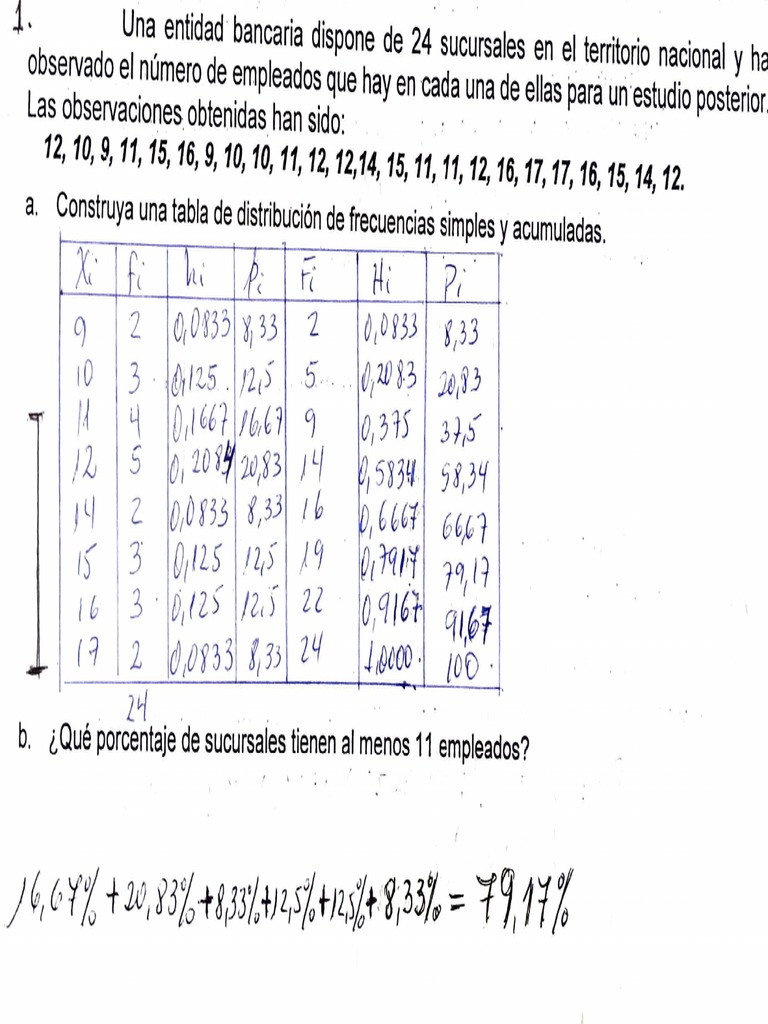 1. Una entidad bancaria dispone de 24 sucursales en el territorio nacional y ha
observado el número de empleados que hay en cada una de ellas para un estudio posterior.
Las observaciones obtenidas han sido:
12, 10, 9, 11, 15, 16, 9, 10, 10, 11, 12, 12,14, 15, 11, 11, 12, 16, 17, 17, 16, 15, 14, 12.
a. Construya una tabla de distribución de frecuencias simples y acumuladas.
Xi fi hi pi Fi Hi Pi
9 2 0,0833 8,33 2 0,0833 8,33
10 3 0,125 12,5 5 0,2083 20,83
11 4 0,1667 16,67 9 0,375 37,5
12 5 0,2084 20,83 14 0,5834 58,34
14 2 0,0833 8,33 16 0,6667 66,67
15 3 0,125 12,5 19 0,7917 79,17
16 3 0,125 12.5 22 0,9167 91,67
17 2 0,0833 8,33 24 1,0000 100
24
b. ¿Qué porcentaje de sucursales tienen al menos 11 empleados?
16,67% + 20,83% + 8,33% + 12,5% + 12,5% + 8,33% = 79,17%